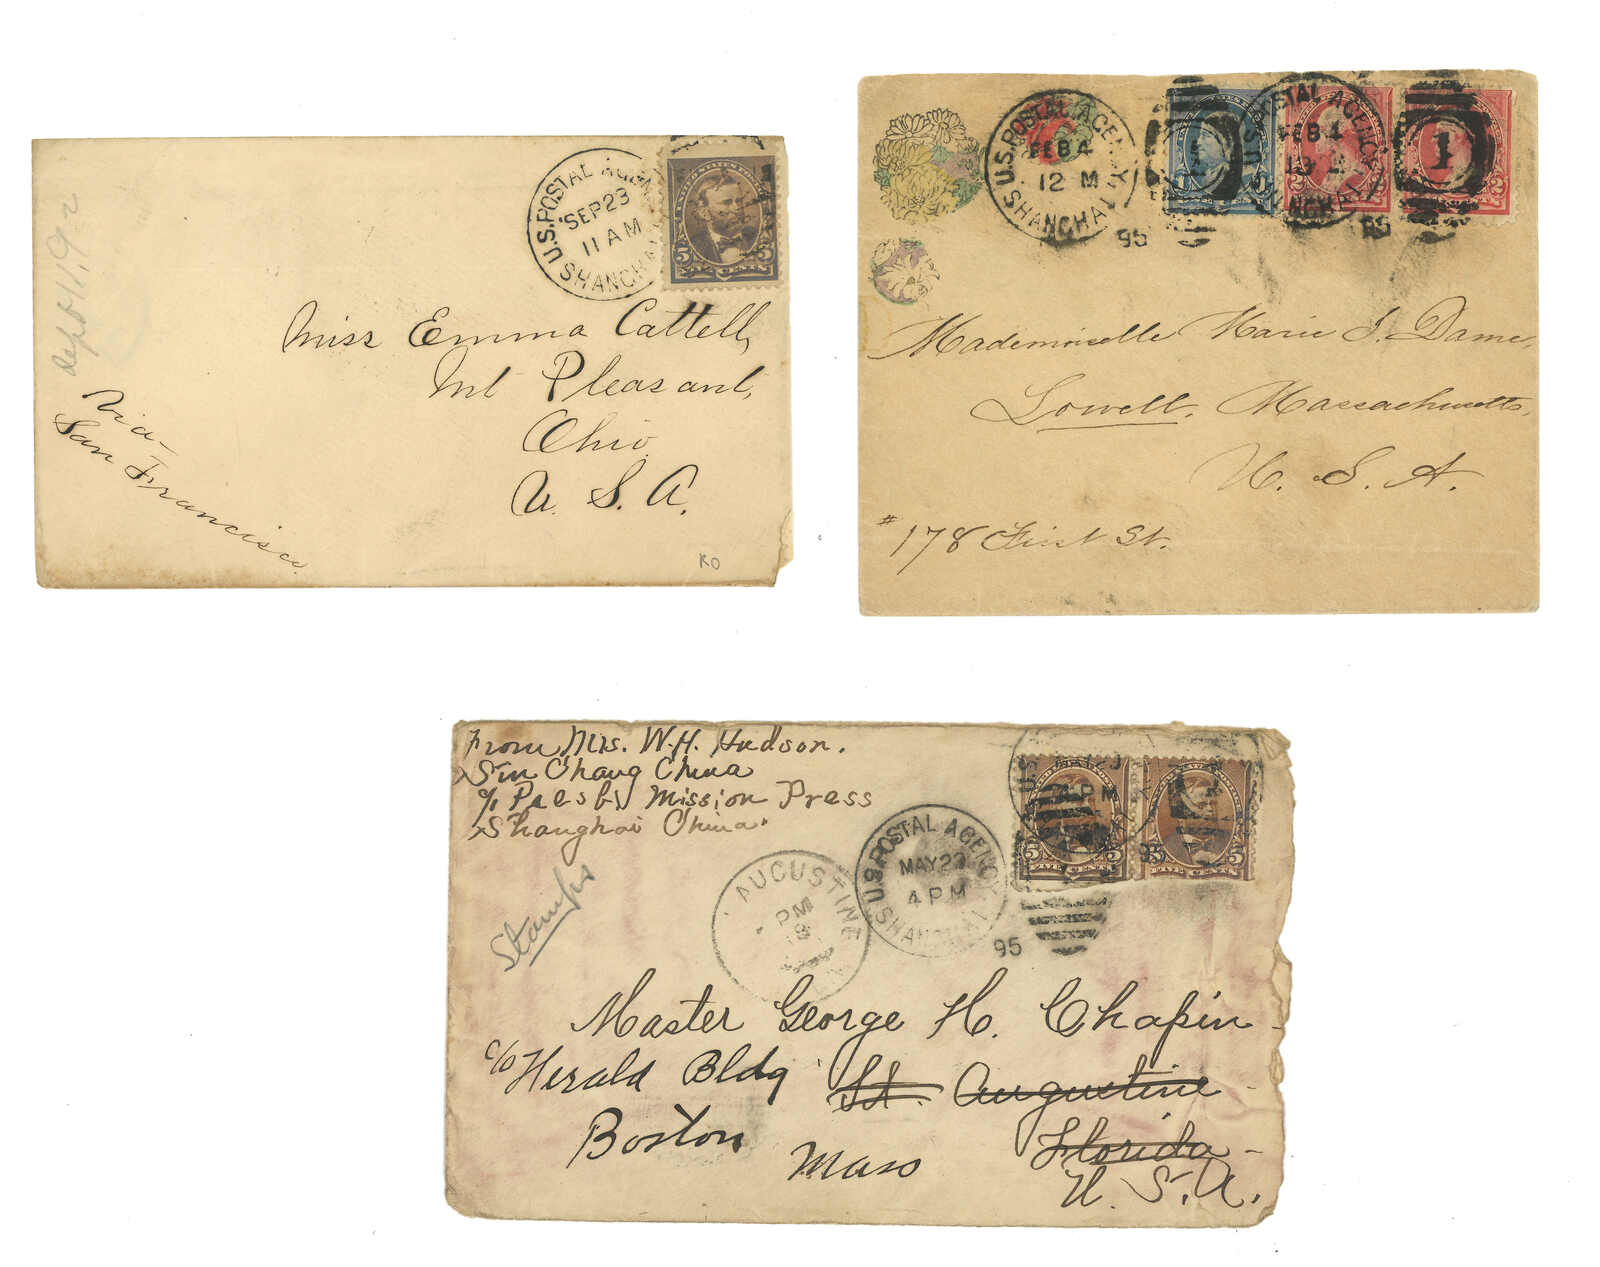 U.S. POSTAL AGENCY
SEP 23
11 AM
SHANGHAI
5 5
FIVE CENTS
Miss Emma Cattell,
Mt Pleasant,
Ohio
U. S. A.
Via
San Francisco.
KO
U.S. POSTAL AGENCY
FEB 4
12 M
SHANGHAI
95
1
1 1
U.S. POSTAL AGENCY
FEB 4
12
SHANGHAI
95
1
2 2
2
Mademoiselle Marie J. Dame,
Lowell, Massachusetts,
U. S. A.
# 178 First St.
From Mrs. W. H. Hudson.
Sin Chang China
c/o Presby Mission Press
Shanghai China.
Stamps
AUGUSTINE
PM
U.S. POSTAL AGENCY
MAY 23
4 PM
SHANGHAI
95
U.S.
4 PM
95
5 5
FIVE CENTS
5
FIVE CENTS
Master George H. Chapin
c/o Herald Bldg St. Augustine
Boston Florida
Mass U. S. A.